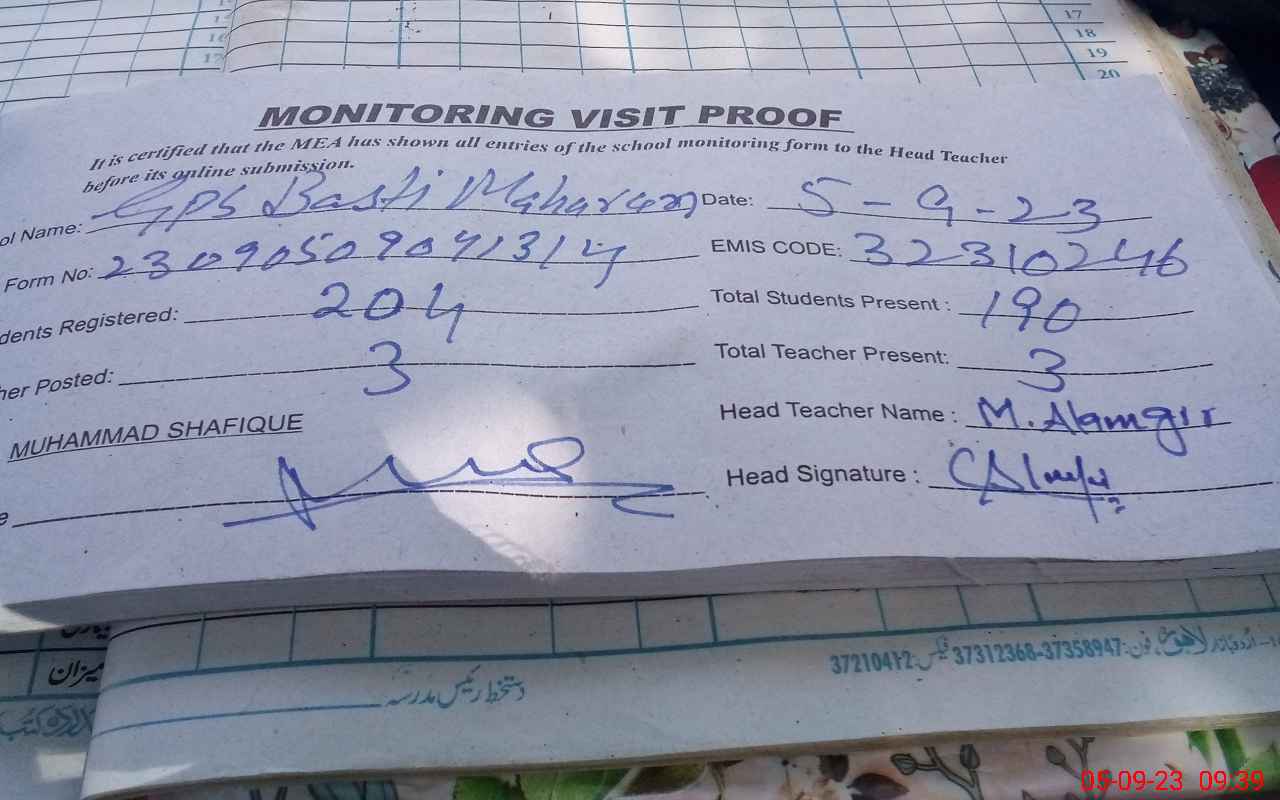 17
18
19
20
16
17
MONITORING VISIT PROOF
It is certified that the MEA has shown all entries of the school monitoring form to the Head Teacher
before its online submission.
ol Name: GPS Basti Maharam Date: 5-9-23
Form No: 23090509041314 EMIS CODE: 32310246
dents Registered: 204 Total Students Present : 190
her Posted: 3 Total Teacher Present: 3
MUHAMMAD SHAFIQUE Head Teacher Name : M. Alamgir
e Head Signature :
میزان
اردو بازار لاہور، فون: 37312368-37358947 فیکس: 37210412
دستخط رئیس مدرسہ
05-09-23 09:39